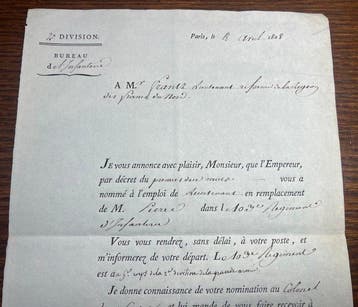 2e DIVISION.
Paris, le 8 avril 1808
BUREAU
d'Infanterie
A M.r Frantz Lieutenant réformé de la légion
des francs du Nord.
JE vous annonce avec plaisir, Monsieur, que l'Empereur,
par décret du premier de ce mois vous a
nommé à l'emploi de Lieutenant en remplacement
de M. Pierre dans le 103e Régiment
d'Infanterie
Vous vous rendrez, sans délai, à votre poste, et
m'informerez de votre départ. Le 103e Régiment
est au 5e corps de la grande armée
Je donne connaissance de votre nomination au Colonel
lui mande de vous faire